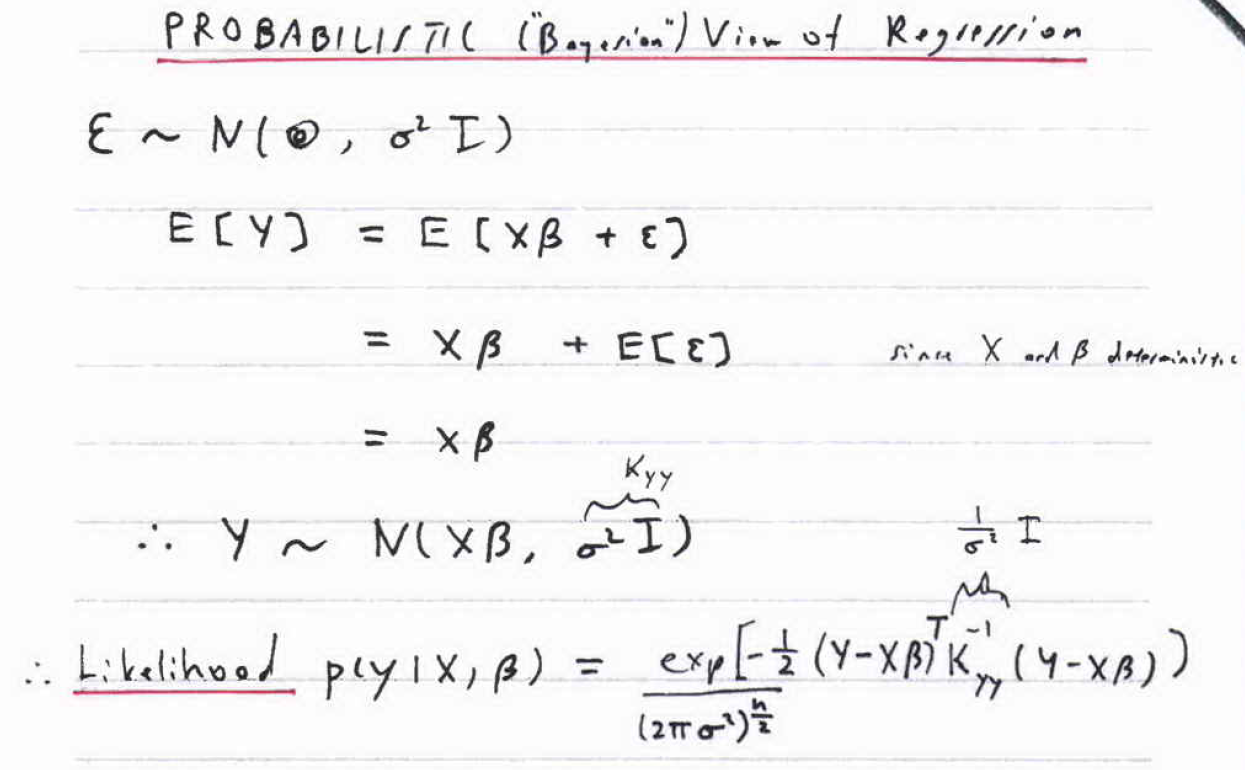 PROBABILISTIC ("Bayesian") View of Regression
ε ~ N(0, σ² I)
E[Y] = E[Xβ + ε]
= Xβ + E[ε] since X and β deterministic
= Xβ
K_yy
∴ Y ~ N(Xβ, σ² I) 1/σ² I
∴ Likelihood p(y|X, β) = exp[-1/2 (Y-Xβ)^T K_yy^-1 (Y-Xβ)]
(2πσ²)^n/2